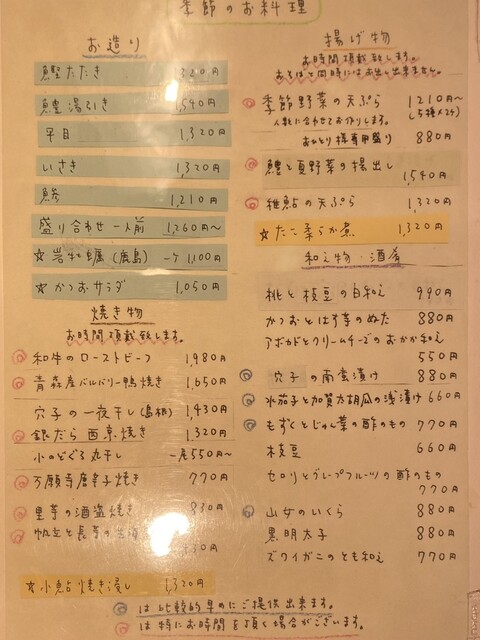 季節のお料理
お造り
鰹たたき 1,320円
鱧湯引き 1,540円
平目 1,320円
いさき 1,320円
鯵 1,210円
盛り合わせ一人前 1,260円〜
☆岩牡蠣(鹿島) 一ケ1,100円
☆かつおサラダ 1,050円
焼き物
お時間頂戴致します。
和牛のローストビーフ 1,980円
青森産バルバリー鴨焼き 1,650円
穴子の一夜干し(島根) 1,430円
銀だら西京焼き 1,320円
小のどぐろ丸干し 一尾550円〜
万願寺唐辛子焼き 770円
里芋の酒盗焼き 830円
帆立と長芋の
30円
☆小鮎焼き浸し 1,320円
揚げ物
お時間頂戴致します。
あるほど同時にはお出し出来ません。
季節野菜の天ぷら 1210円〜
人数に合わせてお作りします。 (5種×2ケ)
おひとり様専用盛り 880円
鱧と夏野菜の揚出し
1,540円
稚鮎の天ぷら 1,320円
☆たこ柔らか煮 1,320円
和え物・酒肴
桃と枝豆の白和え 990円
かつおとはす芋のぬた 880円
アボカドとクリームチーズのおかか和え
550円
穴子の南蛮漬け 880円
水茄子と加賀太胡瓜の浅漬け 660円
もずくとじゅん菜の酢のもの 770円
枝豆 660円
セロリとグレープフルーツの酢のもの
770円
山女のいくら 880円
黒明太子 880円
ズワイガニのとも和え 770円
は比較的早めにご提供出来ます。
は特にお時間を頂く場合がございます。